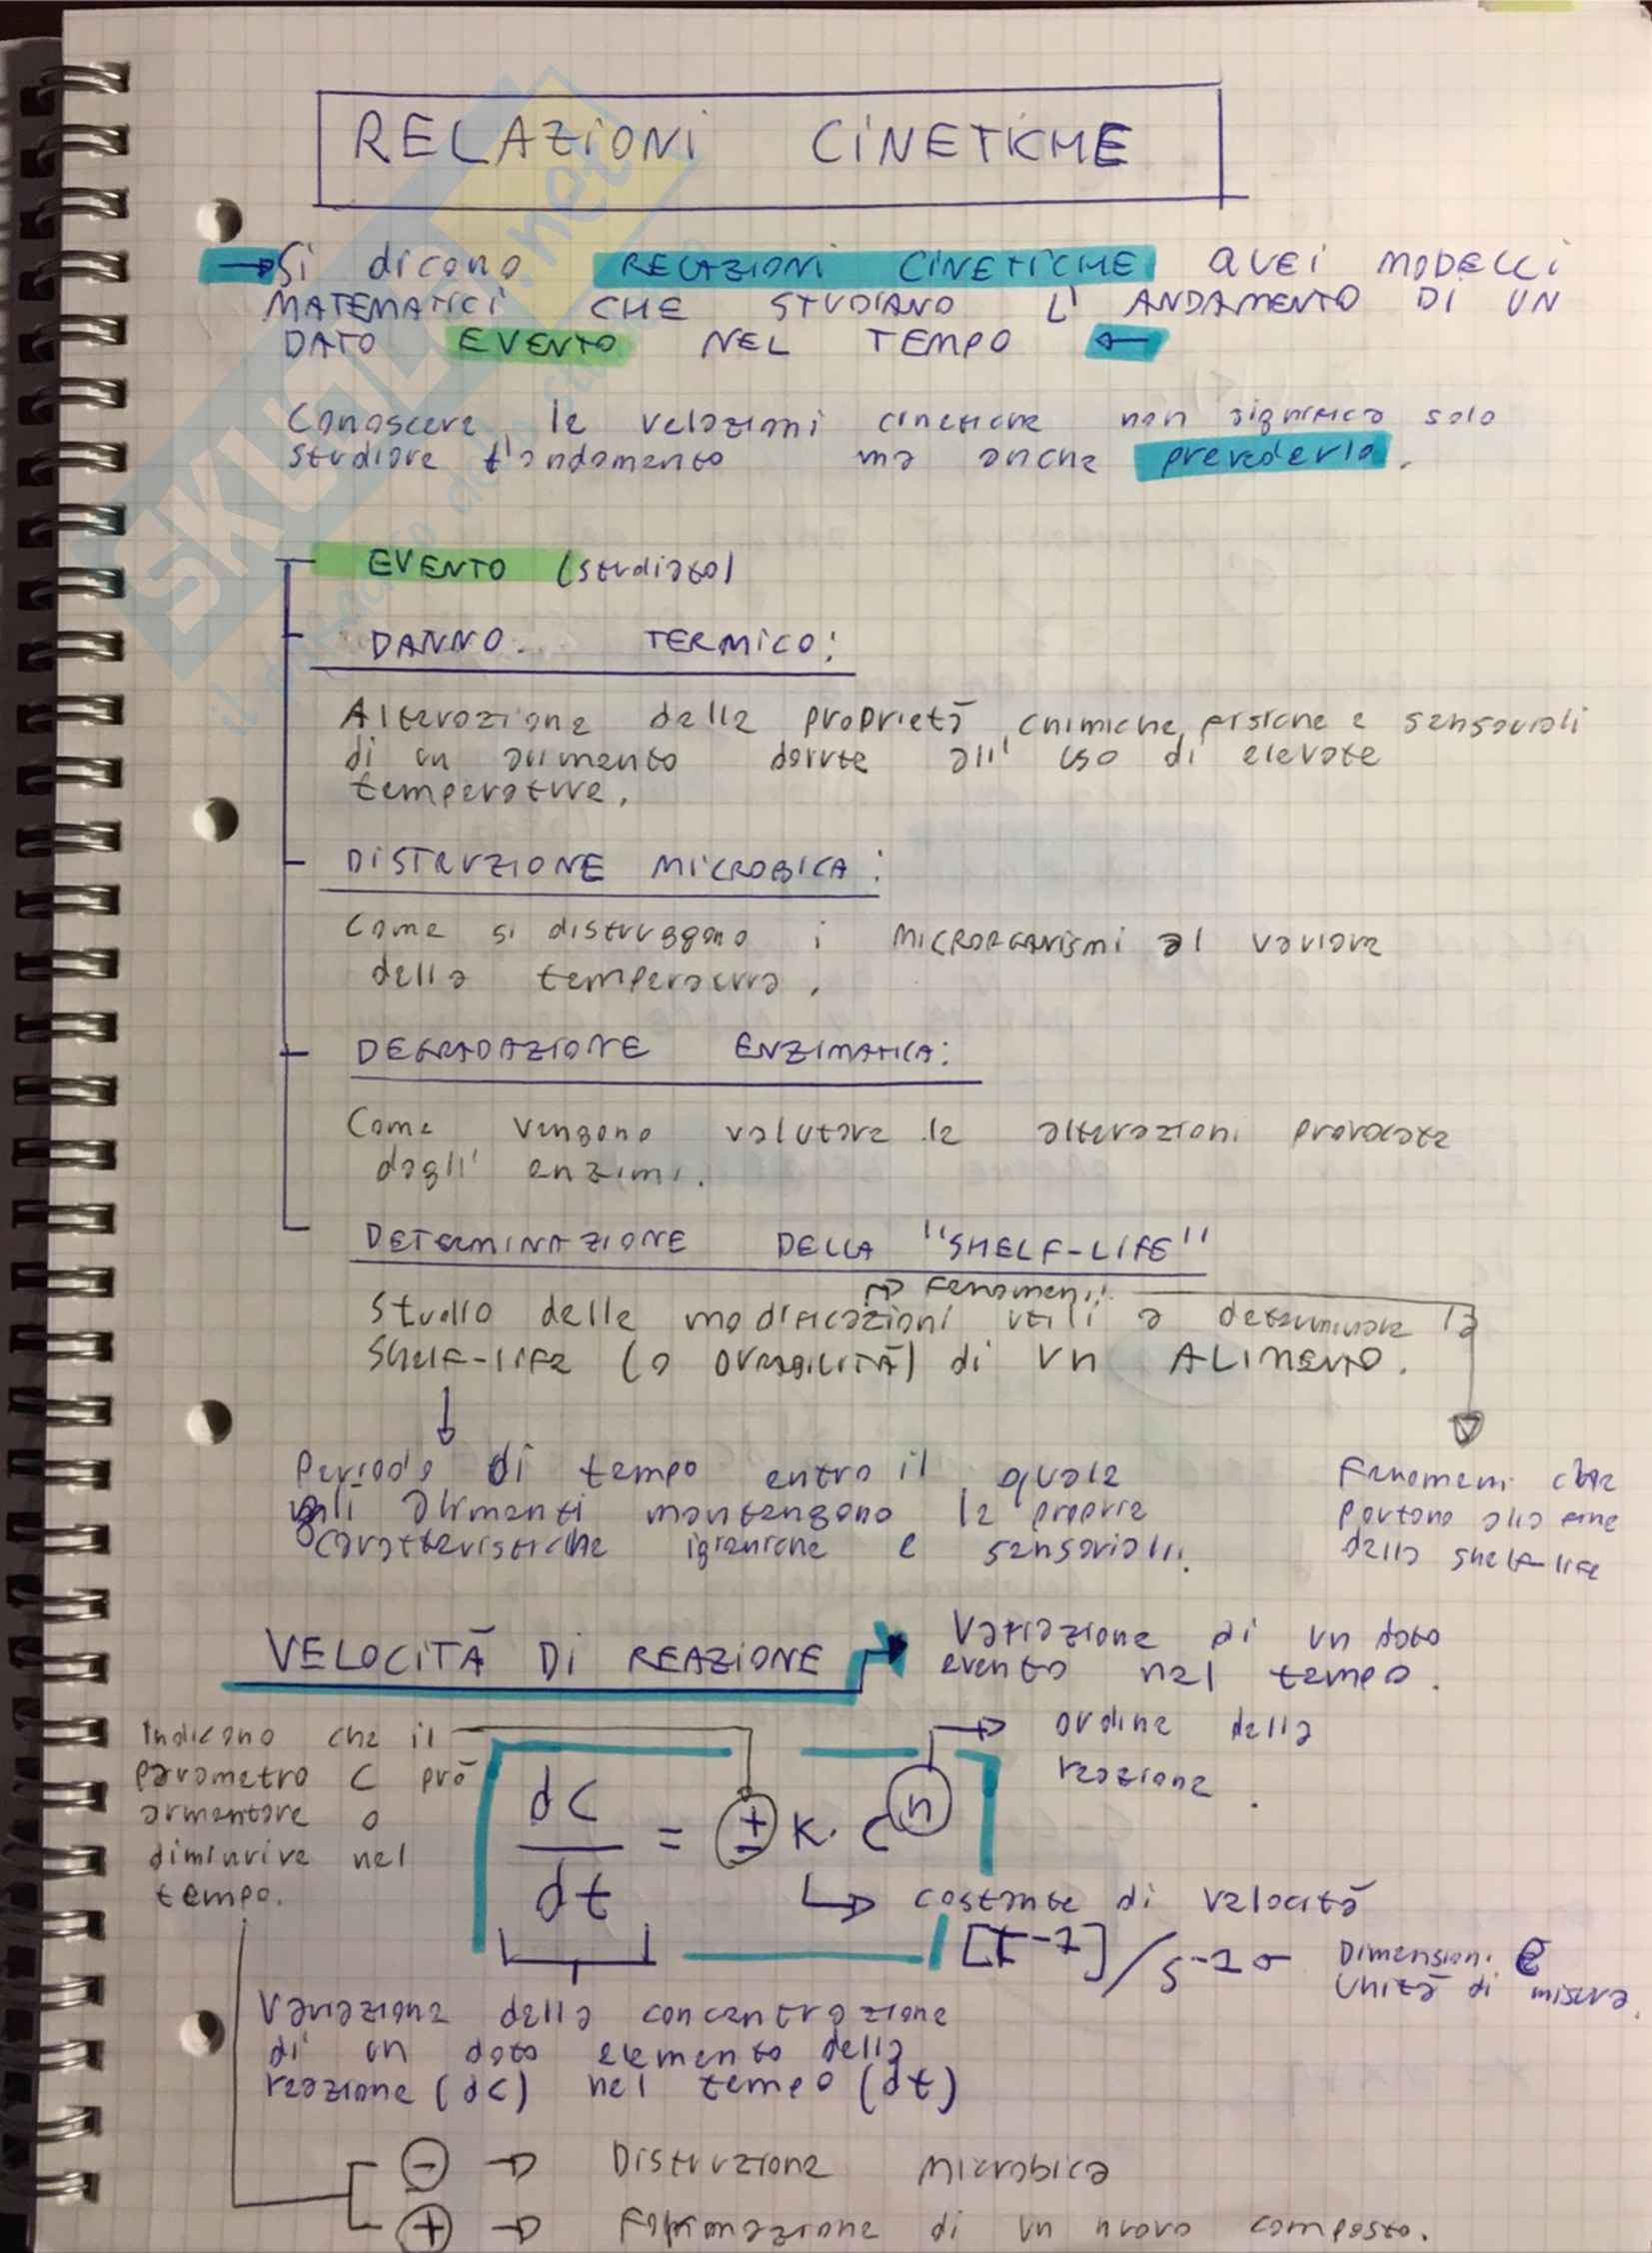 RELAZIONI CINETICHE
→ Si dicono RELAZIONI CINETICHE QUEI MODELLI
MATEMATICI CHE STUDIANO L' ANDAMENTO DI UN
DATO EVENTO NEL TEMPO ←
Conoscere le relazioni cinetiche non significa solo
studiare l'andamento ma anche prevederlo.
EVENTO (studiato)
DANNO TERMICO:
Alterazione delle proprietà chimiche, fisiche e sensoriali
di un alimento dovute all' uso di elevate
temperature.
DISTRUZIONE MICROBICA:
Come si distruggono i MICRORGANISMI al variare
della temperatura.
DEGRADAZIONE ENZIMATICA:
Come vengono valutare le alterazioni provocate
dagli' enzimi.
DETERMINAZIONE DELLA "SHELF-LIFE"
→ Fenomeni
Studio delle modificazioni utili a determinare la
Shelf-life (o DURABILITÀ) di un ALIMENTO.
↓
Periodo di tempo entro il quale
gli alimenti mantengono le proprie
caratteristiche igieniche e sensoriali.
Fenomeni che
portano alla fine
della shelf-life
VELOCITÀ DI REAZIONE → Variazione di un dato
evento nel tempo.
Indicano che il
parametro C può
aumentare o
diminuire nel
tempo.
→ ordine della
reazione.
dC/dt = ± K · C^n
↳ costante di velocità
[t⁻¹] / s⁻¹ Dimensioni e
Unità di misura.
Variazione della concentrazione
di un dato elemento della
reazione (dC) nel tempo (dt)
⊖ → Distruzione Microbica
⊕ → Formazione di un nuovo composto.
SKUOLA.net